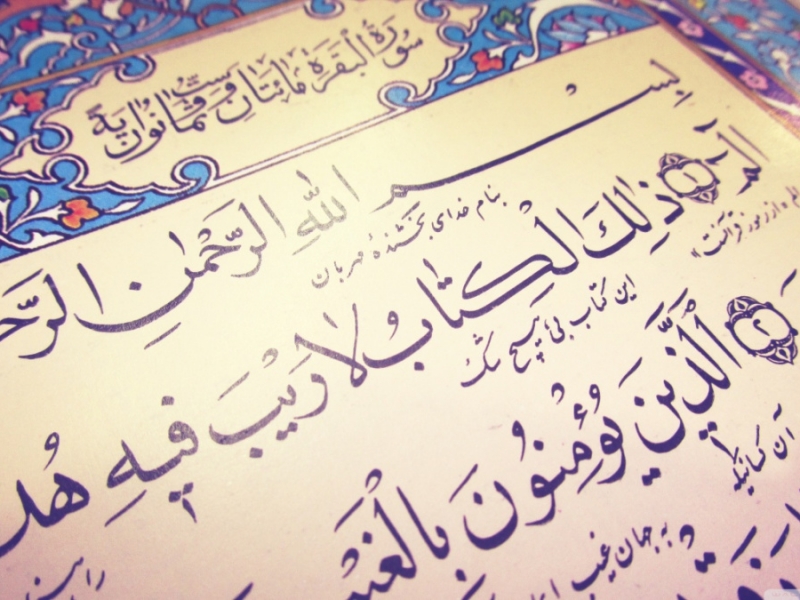 سُورَةُ الْبَقَرَةِ مِائَتَانِ وَسِتٌّ وَثَمَانُونَ آيَةً
بِسْمِ اللهِ الرَّحْمٰنِ الرَّح
بنام خدای بخشندهٔ مهربان
الٓمٓ ۱ ذٰلِكَ الْكِتَابُ لَا رَيْبَ فِيهِ هُد
الم «از رموز قرآنست» این کتاب بی هیچ شک
۲ الَّذِينَ يُؤْمِنُونَ بِالْغَيْ
آن کسانیکه به جهان غیب